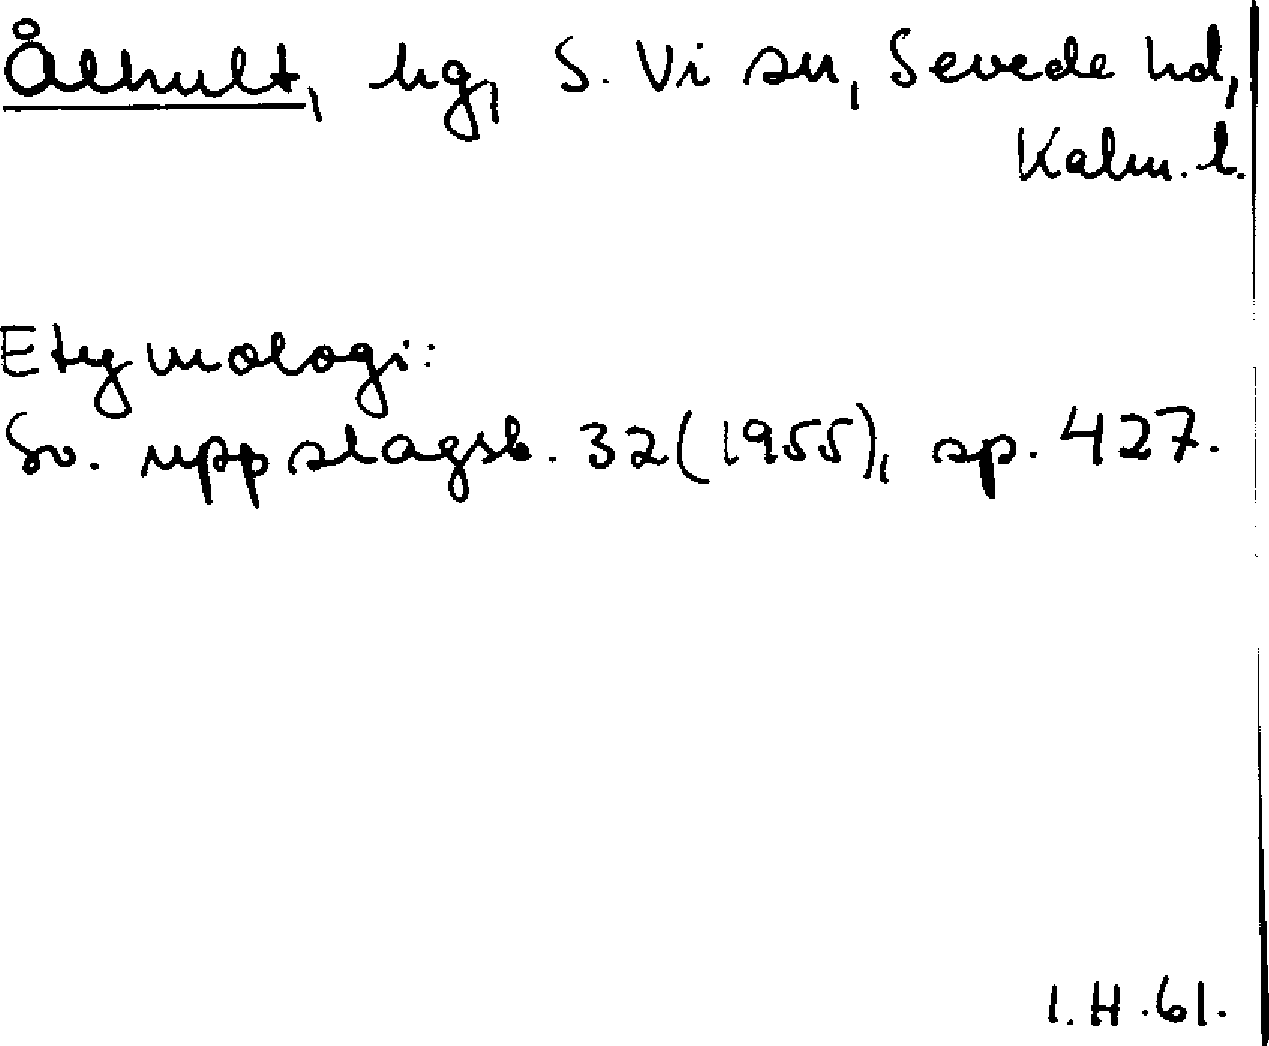 Ålhult, hg, S. Vi sn, Sevede hd,
Kalm. l.
Etymologi:
Sv. uppslagsb. 32 (1955), sp. 427.
I. H. 61.